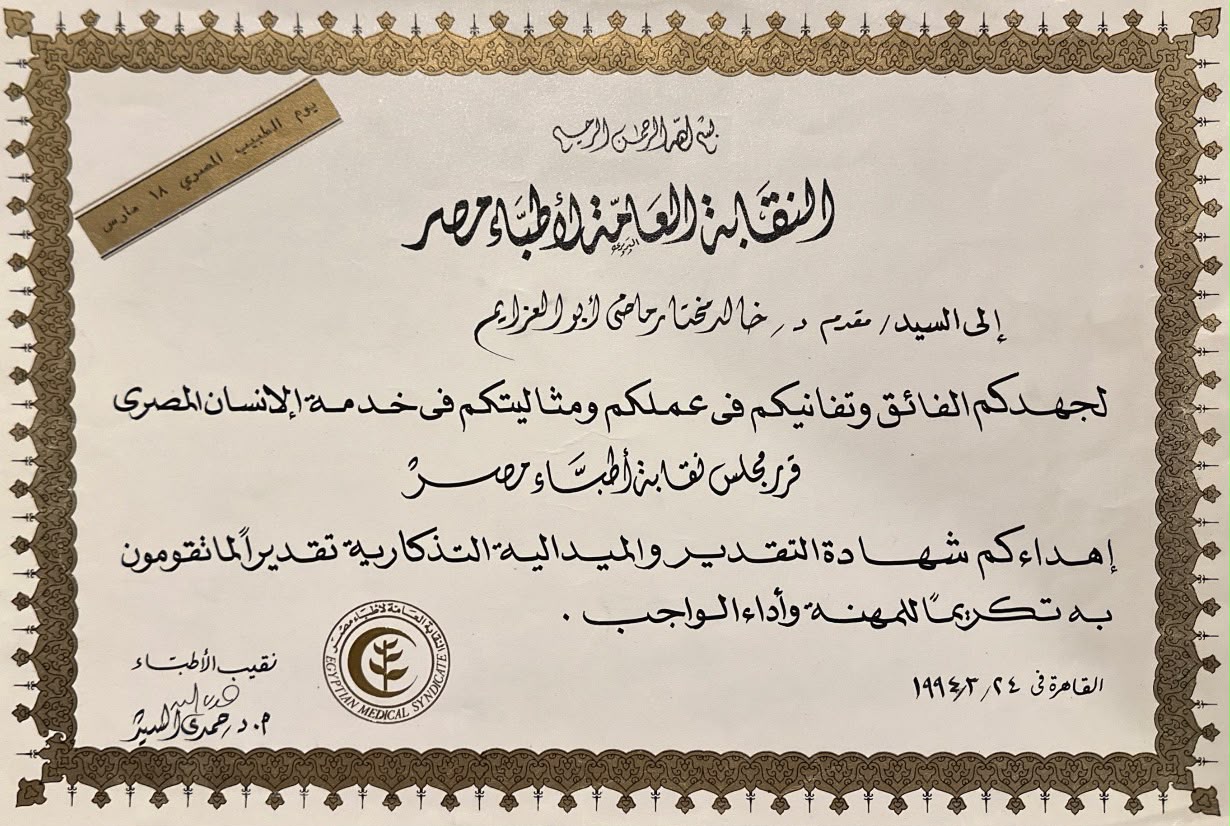 يوم الطبيب المصري ١٨ مارس
بسم الله الرحمن الرحيم
النقابة العامة لأطباء مصر
إلى السيد/ مقدم د/ خالد مختار ماضى أبو العزايم
لجهدكم الفائق وتفانيكم فى عملكم ومثاليتكم فى خدمة الإنسان المصرى
قرر مجلس نقابة أطباء مصر
إهداءكم شهادة التقدير والميدالية التذكارية تقديراً لما تقومون
به تكريماً للمهنة وأداء الواجب .
القاهرة فى ٢٤/٣/١٩٩٤
النقابة العامة لأطباء مصر
EGYPTIAN MEDICAL SYNDICATE
نقيب الأطباء
أ.د/ حمدى السيد